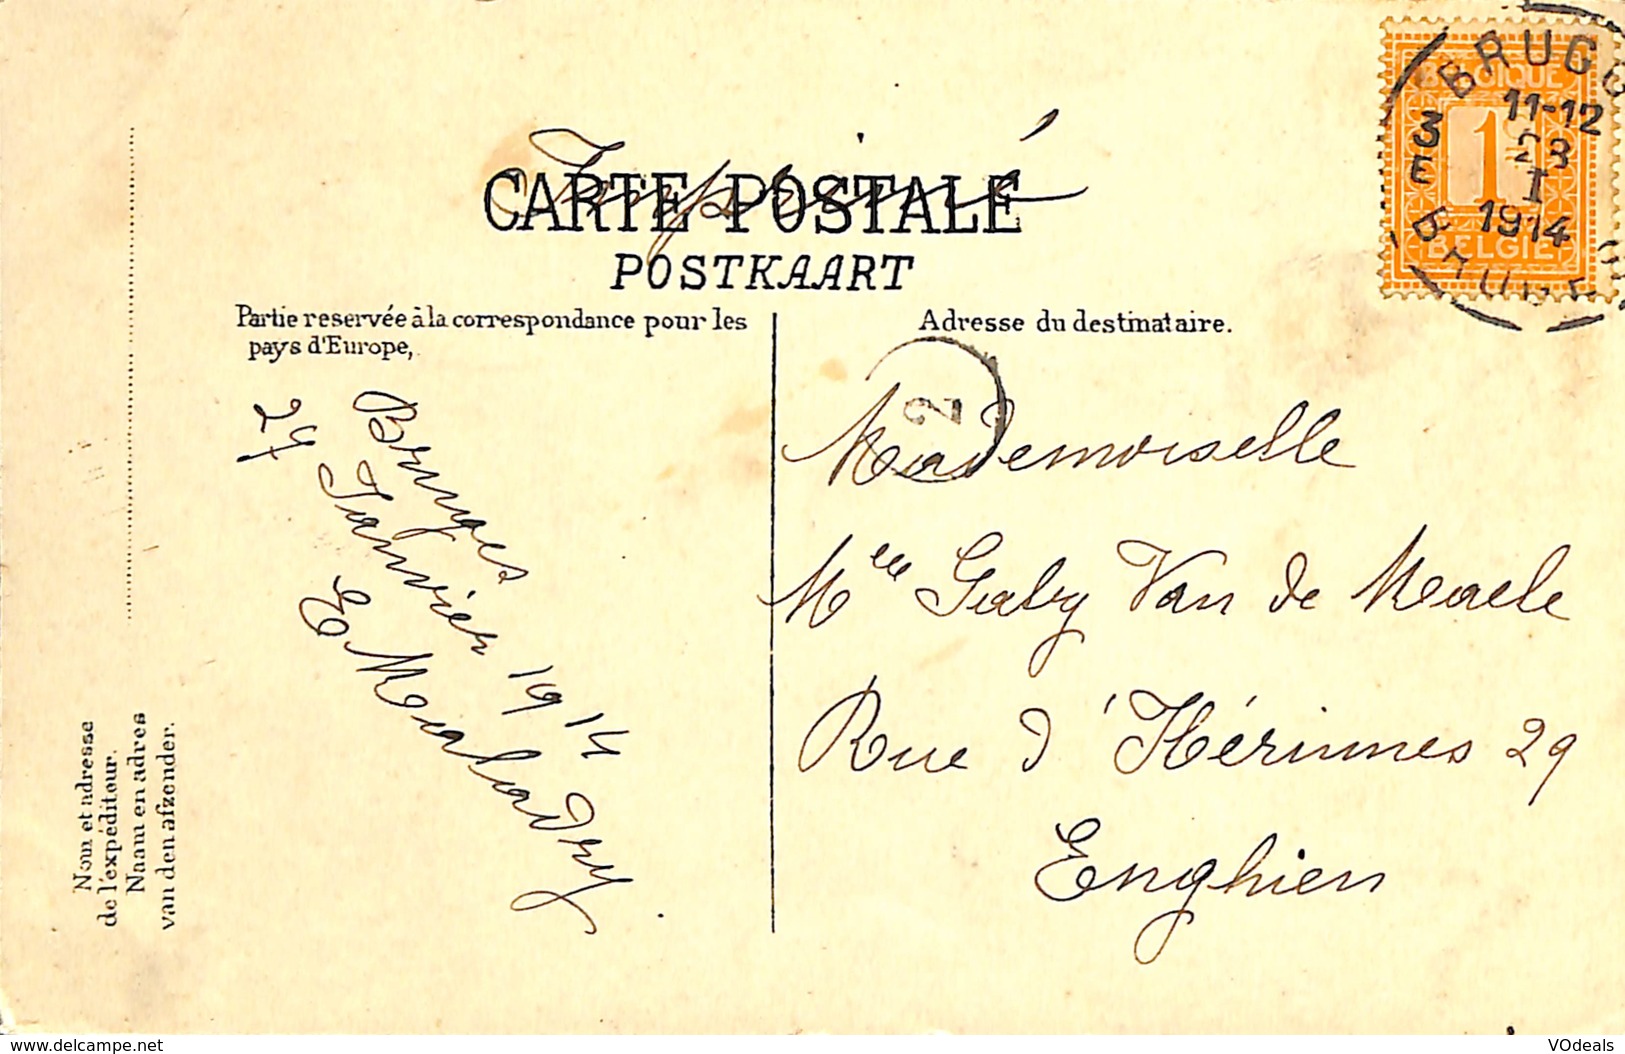 Imprimé
CARTE POSTALE
POSTKAART
Partie reservée à la correspondance pour les
pays d'Europe,
Adresse du destinataire.
BRUGG
11-12
3 E
28
I
1914
BRUGE
BELGIQUE
1
BELGIË
2
Bruges
27 Janvier 1914
E Maladry
Mademoiselle
Mlle Gaby Van de Maele
Rue d'Hérinnes 29
Enghien
Nom et adresse
de l'expéditeur.
Naam en adres
van den afzender.
www.delcampe.net
VOdeals